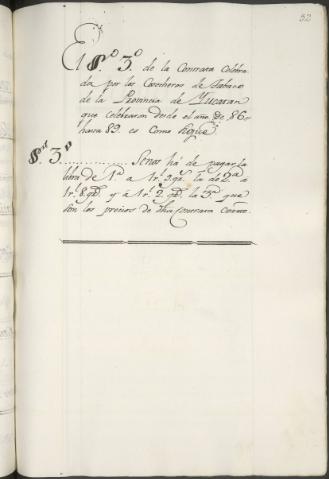 52
El §.º 3.º de la Contrata Celebra-
da por los Cosecheros de Tabaco
de la Provincia de Yucatan
que celebraron desde el año de 86,,
hasta 89. es Como sigue,,
§.º 3.º ............. Se nos há de pagar la
libra de 1.ª a 1 r.l 9. g.s la de 2.ª a
1 r.l 8. g.s y á 1 r.l 2. g.s la 3.ª que
son los precios de dha Contrata